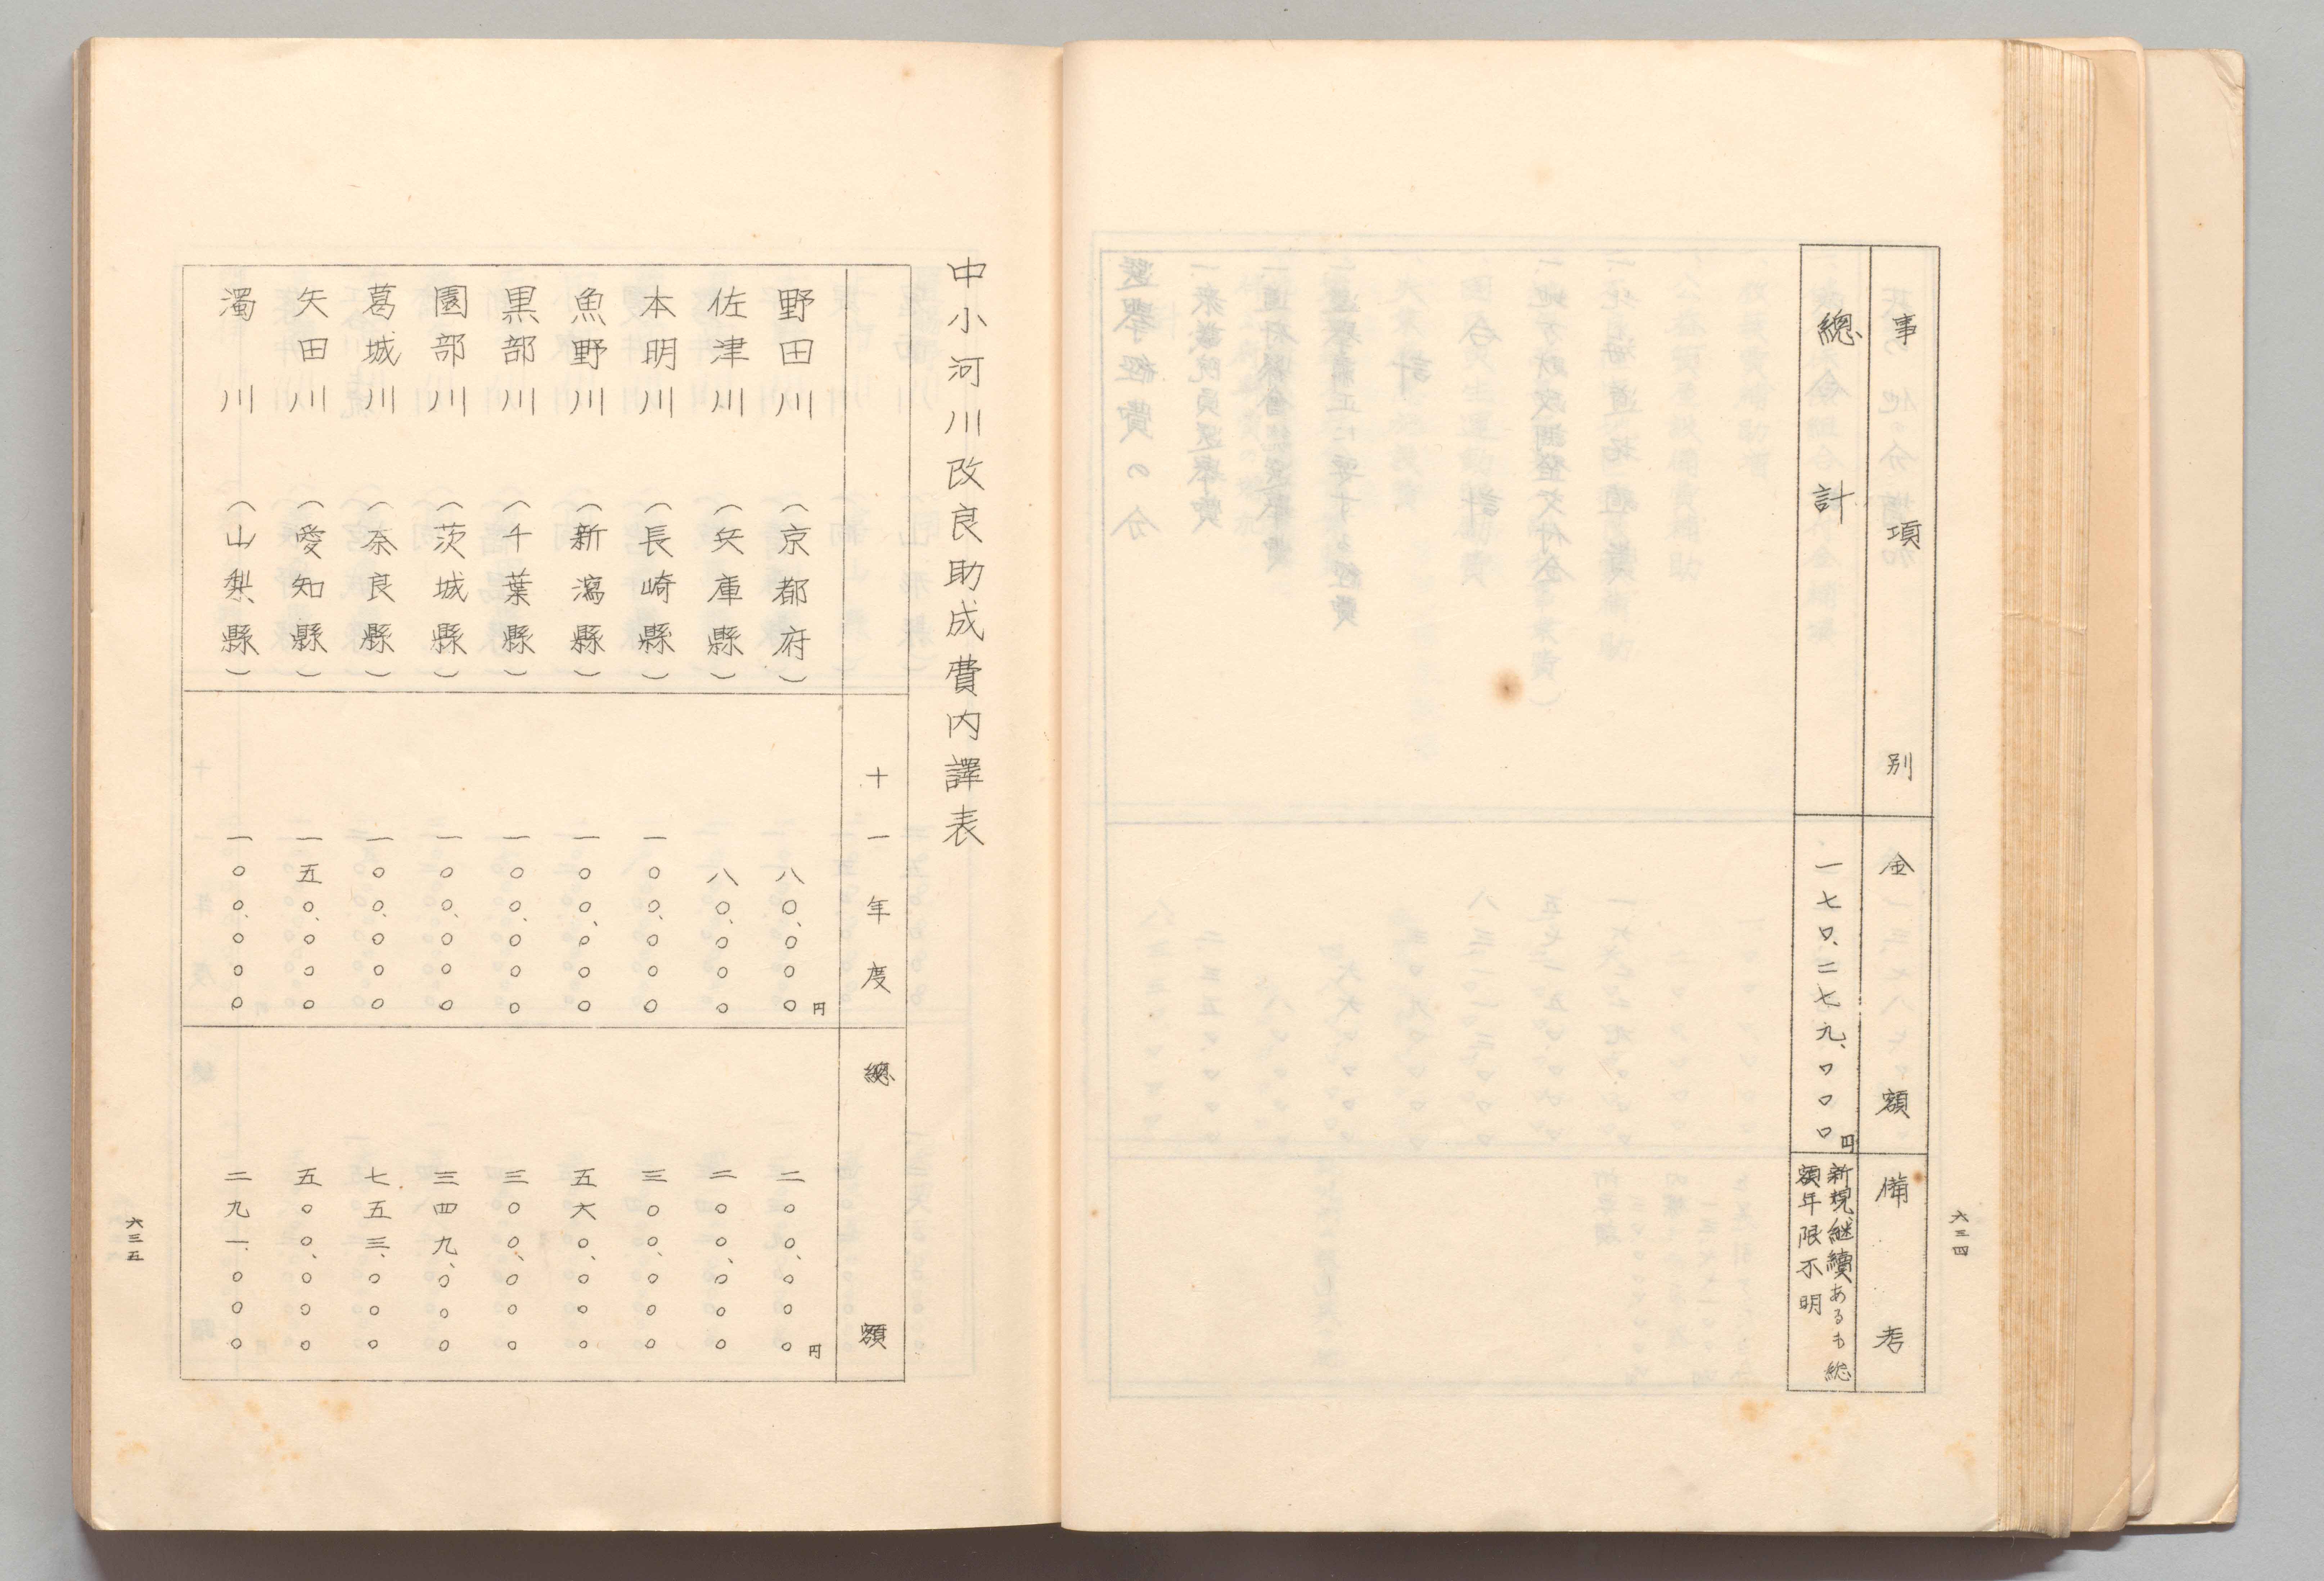 事項別
金額
備考
總計
一七〇、二七九、〇〇〇円
新規、継續あるも総
額年限不明
六三四
中小河川改良助成費内譯表
十一年度
總額
野田川（京都府）　八〇、〇〇〇円　二〇〇、〇〇〇円
佐津川（兵庫縣）　八〇、〇〇〇　二〇〇、〇〇〇
本明川（長崎縣）　一〇〇、〇〇〇　三〇〇、〇〇〇
魚野川（新潟縣）　一〇〇、〇〇〇　五六〇、〇〇〇
黒部川（千葉縣）　一〇〇、〇〇〇　三〇〇、〇〇〇
園部川（茨城縣）　一〇〇、〇〇〇　三四九、〇〇〇
葛城川（奈良縣）　一〇〇、〇〇〇　七五三、〇〇〇
矢田川（愛知縣）　一五〇、〇〇〇　五〇〇、〇〇〇
濁川（山梨縣）　一〇〇、〇〇〇　二九一、〇〇〇
六三五